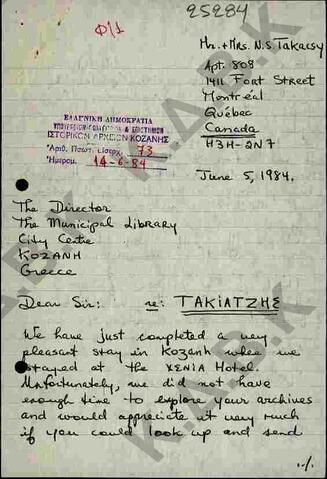 25284
Φ1/1
Mr. + Mrs. N.S. Takacsy
Apt. 808
1411 Fort Street
Montréal
Québec
Canada
H3H-2N7
ΕΛΛΗΝΙΚΗ ΔΗΜΟΚΡΑΤΙΑ
ΥΠΟΥΡΓΕΙΟΝ ΠΟΛΙΤΙΣΜΟΥ & ΕΠΙΣΤΗΜΩΝ
ΙΣΤΟΡΙΚΟΝ ΑΡΧΕΙΟΝ ΚΟΖΑΝΗΣ
Αριθ. Πρωτ. εισερχ. 73
Ημερομ. 14-6-84
June 5, 1984.
The Director
The Municipal Library
City Centre
KOZANH
Greece
Dear Sir: re: ΤΑΚΙΑΤΖΗΣ
We have just completed a very
pleasant stay in Kozanh where we
stayed at the XENIA Hotel.
Unfortunately, we did not have
enough time to explore your archives
and would appreciate it very much
if you could look up and send
../.